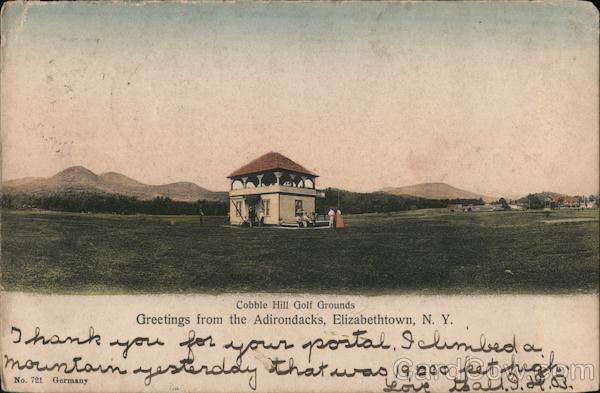 Cobble Hill Golf Grounds
Greetings from the Adirondacks, Elizabethtown, N. Y.
Thank you for your portal. I climbed a
mountain yesterday that was 12,000 feet high
No. 721 Germany
CardCow.com